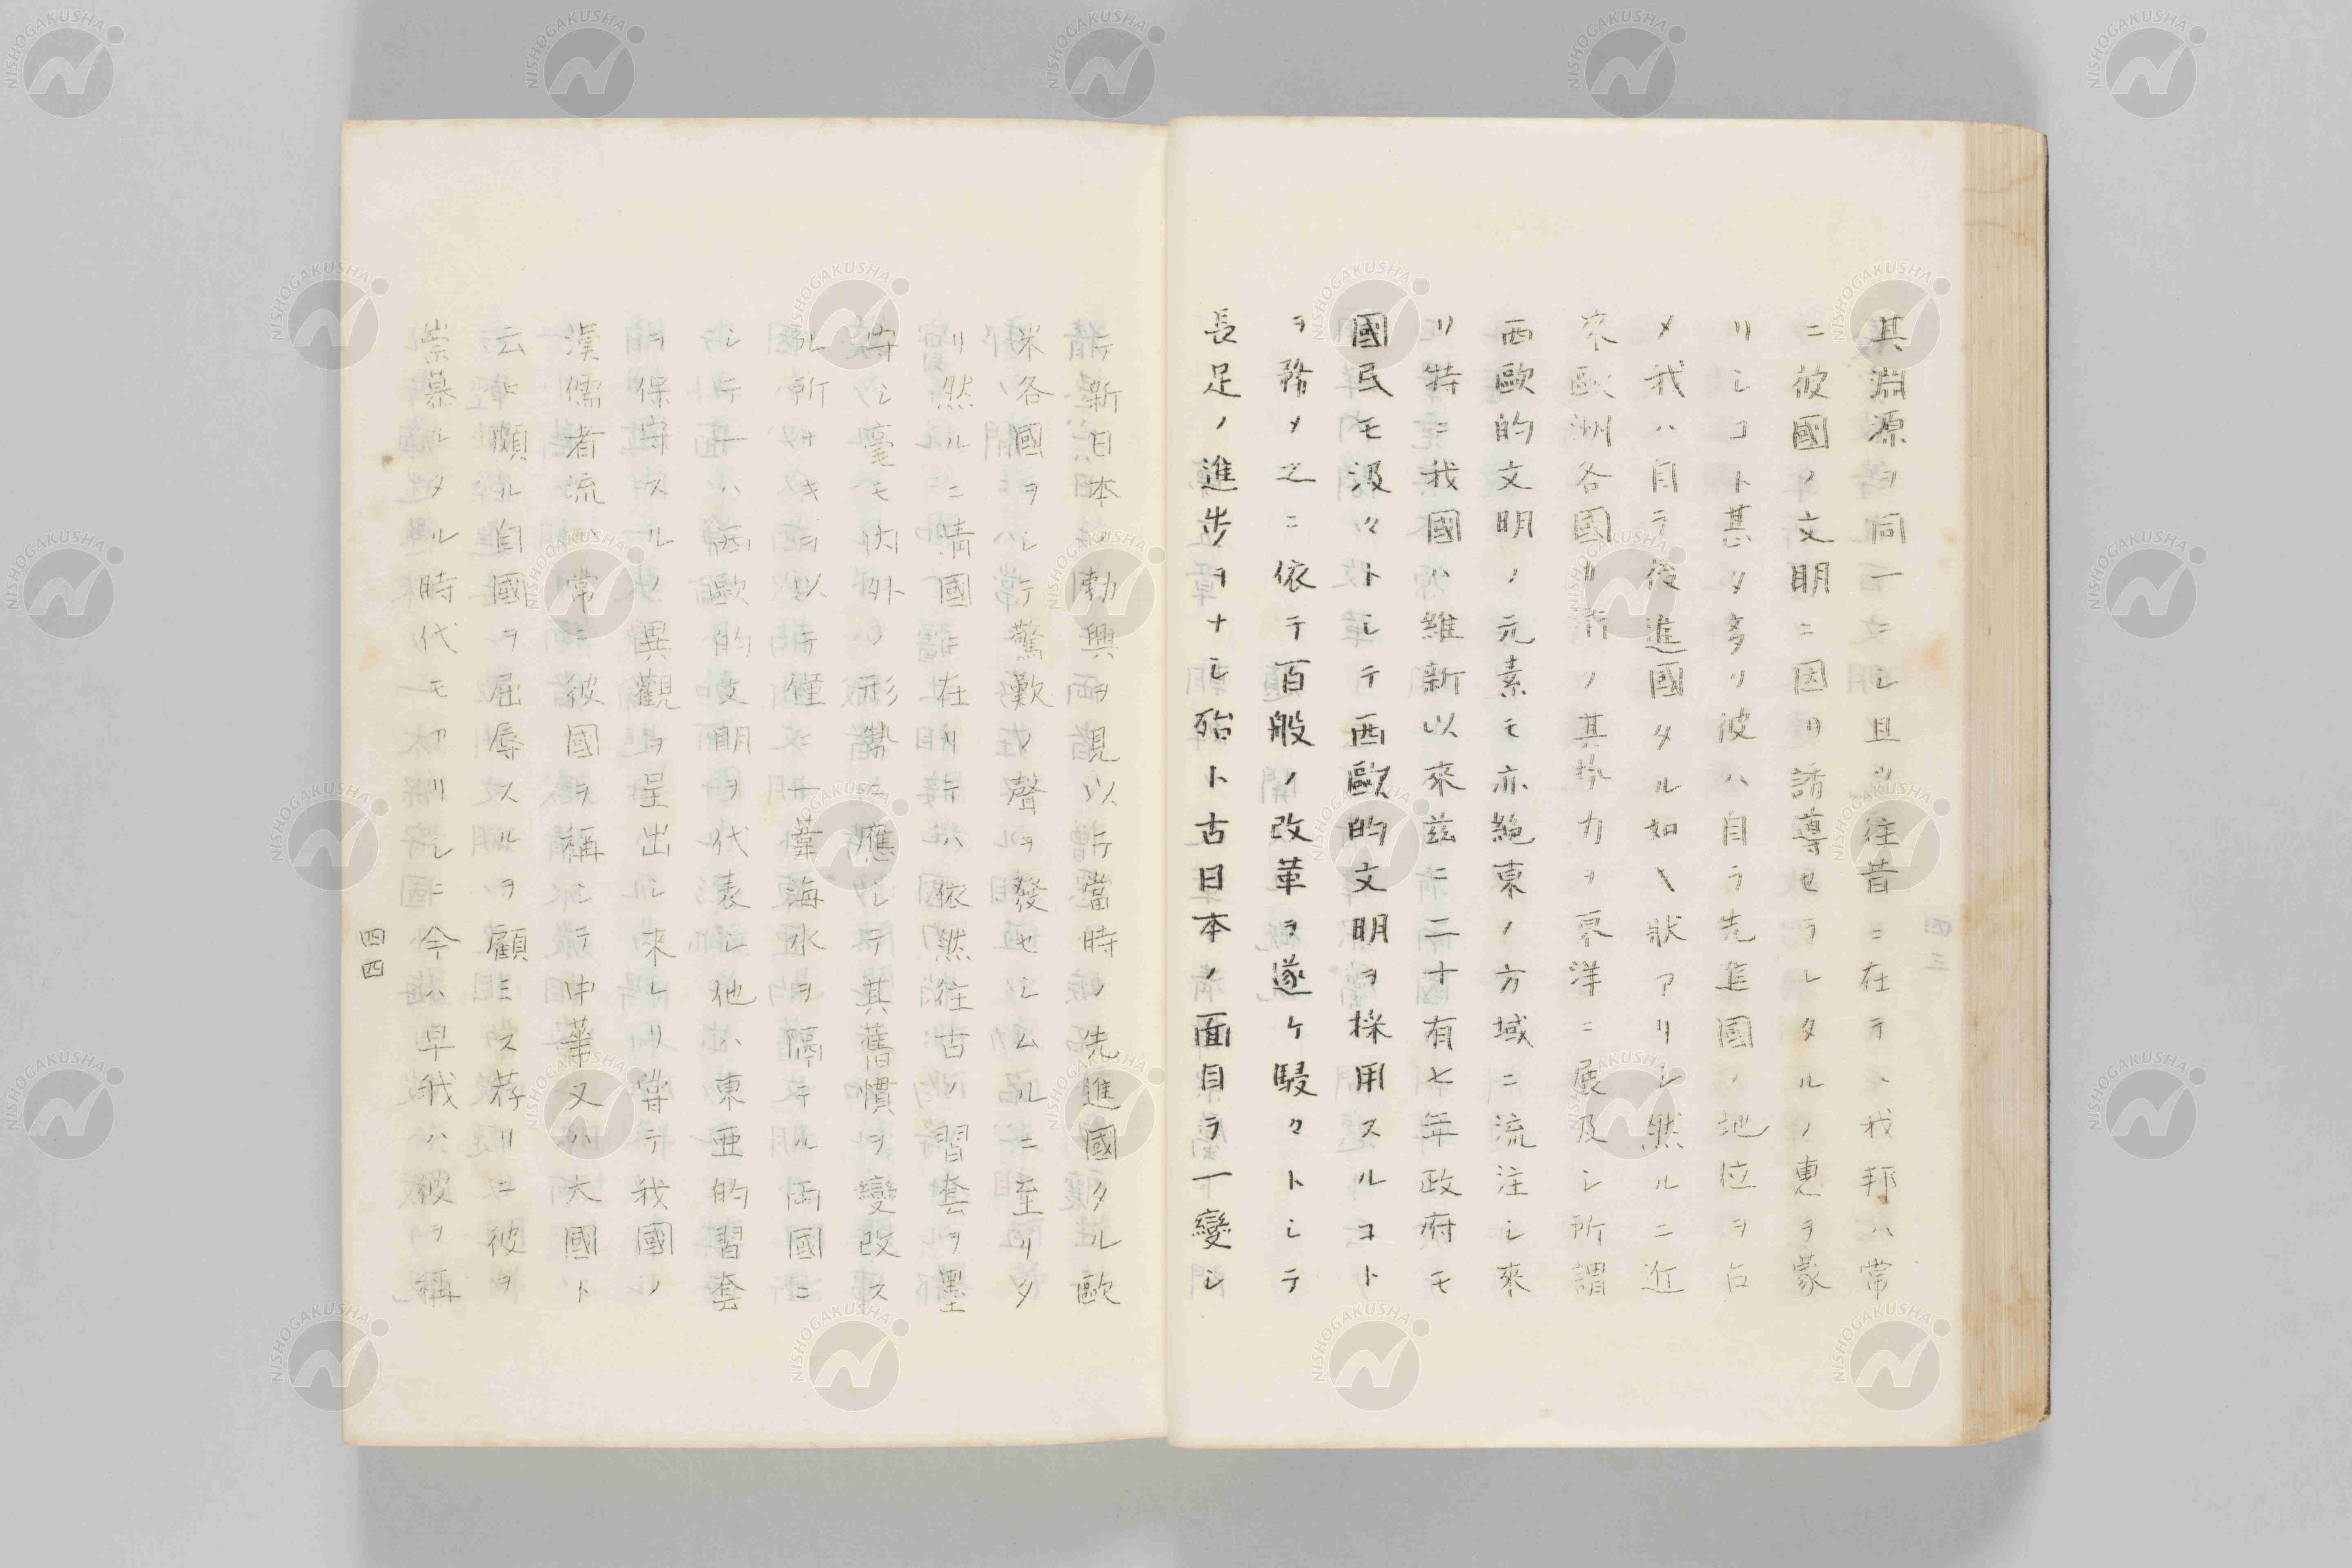 其淵源ヲ同一ニシ且ツ往昔ニ在テハ我邦ハ常
ニ彼國ノ文明ニ因リ誘導セラレタルノ恵ヲ蒙
リシコト甚タ多リ彼ハ自ラ先進國ノ地位ヲ占
メ我ハ自ラ後進國タル如キ狀アリシ然ルニ近
來歐洲各國カ漸ノ其勢力ヲ東洋ニ展及シ所謂
西歐的文明ノ元素モ亦絶東ノ方域ニ流注シ來
リ特ニ我國ハ維新以來茲ニ二十有七年政府モ
國民モ汲々トシテ西歐的文明ヲ採用スルコト
ヲ務メ之ニ依テ百般ノ改革ヲ遂ケ駸々トシテ
長足ノ進步ヲナシ殆ト古日本ノ面目ラ一變シ
テ新日本ノ勃興ヲ現以テ當時ノ先進國タル歐
米各國ヲシテ驚歎ノ聲ヲ發セシムルニ至リタ
リ然ルニ清國ニ在リテハ依然往古ノ習套ヲ墨
守シ毫モ内外ノ形勢ニ應シテ其舊慣ヲ變改ス
ル所ナキヲ以テ僅ニ一葦海水ヲ隔テル兩國ニ
シテ一ハ西歐的文明ヲ代表シ他ハ東亜的習套
ヲ保守スルノ異觀ヲ呈出シ來レリ嘗テ我國ノ
漢儒者流ハ常ニ彼國ヲ稱シテ中華又ハ大國ト
云ヒ頗ル自國ヲ屈辱スルヲ顧ミス荐リニ彼ヲ
崇慕ルタル時代モアリシニ今ハ早我ハ彼ヲ稱
四四
NISHOGAKUSHA